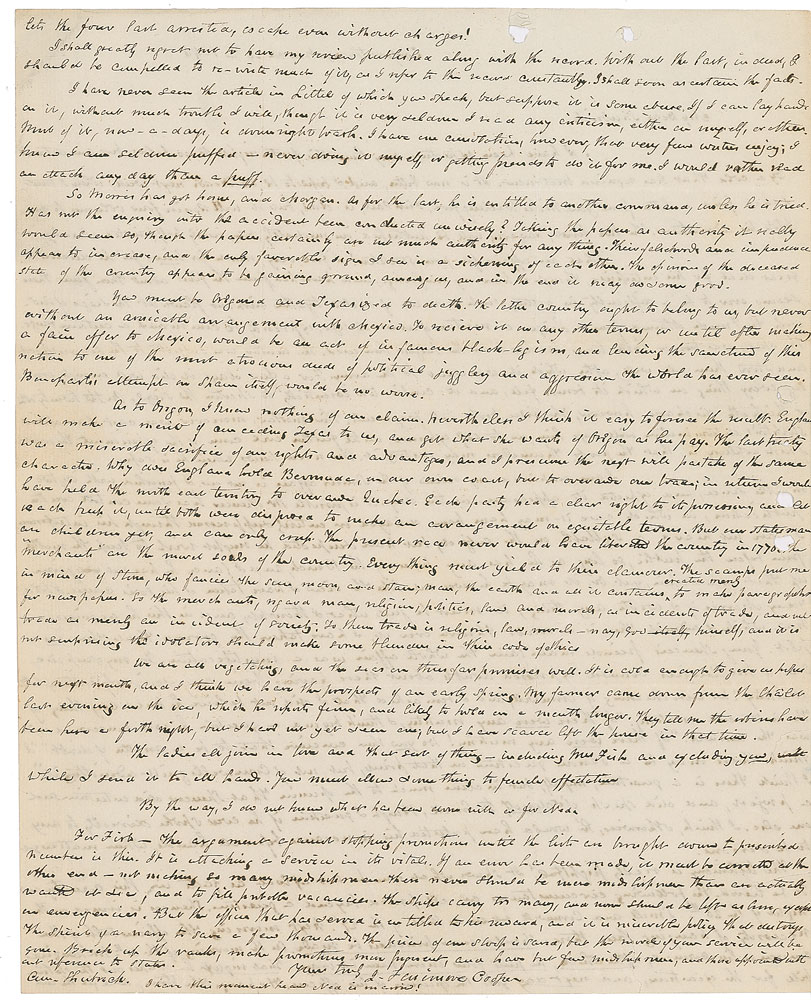 lets the four last arrested, escape even without charges!
I shall greatly regret not to have my review published along with the record. Without the last, indeed, I
should be compelled to re-write much of it, as I refer to the record constantly. I shall soon ascertain the fact.
I have never seen the article in Littel of which you speak, but suppose it is some abuse. If I can lay hands
on it, without much trouble I will, though it is very seldom I read any criticism, either on myself, or others.
Most of it, now-a-days, is downright trash. I have one consolation, however, that very few writers enjoy; I
know I am seldom puffed - never doing it myself, or getting friends to do it for me. I would rather read
an attack any day than a puff.
So Morris has got home, and charges. As for the last, he is entitled to another command, unless he is tried.
Has not the enquiry into the accident been conducted unwisely? Taking the papers as authority it really
would seem so, though the papers certainly are not much authority for any thing. Their falsehoods and impudence
appear to increase, and the only favorable sign I see is a sickening of each other. The opinions of the diseased
state of the country appear to be gaining ground, among us, and in the end it may do some good.
You must be Oregoned and Texasized to death. The latter country ought to belong to us, but never
without an amicable arrangement with Mexico. To recieve it on any other terms, or until after making
a fair offer to Mexico, would be an act of infamous black-legism, and lending the sanction of this
nation to one of the most atrocious deeds of political jugglery and aggression the world has ever seen.
Bonaparte's attempt on Spain itself, would be no worse.
As to Oregon, I know nothing of our claim. Nevertheless I think it easy to foresee the result. England
will make a merit of conceding Texas to us, and get what she wants of Oregon as her pay. The last treaty
was a miserable sacrifice of our rights and advantages, and I presume the next will partake of the same
character. Why does England hold Bermuda, on our own coast, but to overawe our trade; in return I would
have held the north east territory to overawe Quebec. Each party had a clear right to its possessions and let
each keep it, until both were disposed to make an arrangement on equitable terms. But our statesmen
are children yet, and can only creep. The present race never would have liberated the country in 1776. The
"merchants" are the moral scabs of the country. Every thing must yield to their clamour. The scamps put me
in mind of Stone, who fancies the sun, moon, and stars; man, the earth and all it contains, created merely to make paragraphs
for newspapers. So the merchants, regard man, religion, politics, law and morals, as incidents of trade, and not
trade as merely an incident of society. To them trade is religion, law, morals - nay, God itself himself, and it is
not surprising the idolators should make some blunders in their code of ethics.
We are all vegetating, and the season thus far promises well. It is cold enough to give us
for next month, and I think we have the prospects of an early spring. My farmer came down from the Châlet
last evening on the ice, which he reports firm, and likely to hold on a month longer. They tell me the robins have
been here a fortnight, but I have not yet seen one; but I have scarce left the house in that time.
The ladies all join in love and that sort of thing - including Mrs Fish and excluding you,
while I send it to all hands. You must allow something to female affectation
By the way, I do not know what has been done with or for Ned.
For Fish - The argument against stopping promotions until the lists are brought down to prescribed
number is this. It is attacking a service in its vitals. If an error has been made, it must be corrected at the
other end - not making so many midshipmen. There never should be more midshipmen than are actually
wanted at sea; and to fill probable vacancies. The ships carry too many, and none should be left as here, except
in emergencies. But the officer that has served is entitled to his reward, and it is miserable policy that destroys
the spirit of a navy to save a few thousands. The price of one sloop is saved, but the morale of your service will be
gone. Break up the ranks, make promotions more frequent, and have but few midshipmen, and those appointed with-
out reference to states. Yours truly J- Fenimore Cooper
Com. Shubrick. I have this moment heard Ned is in arrow!